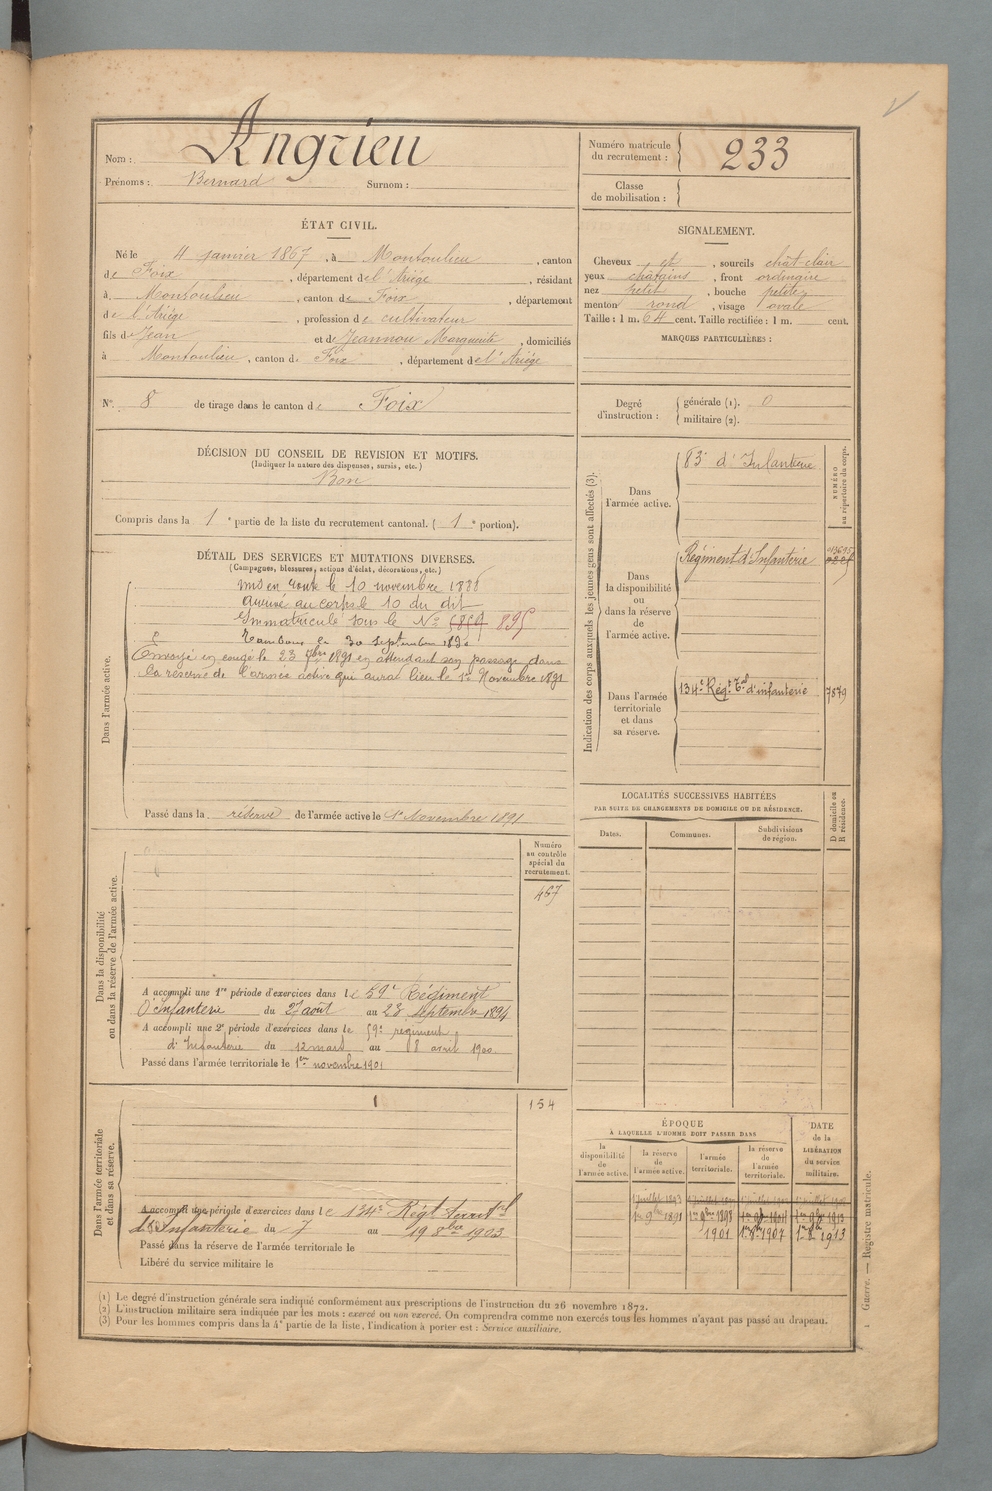 Nom : Angrieu
Prénoms : Bernard Surnom :
Numéro matricule du recrutement : 233
Classe de mobilisation :
ÉTAT CIVIL.
Né le 4 janvier 1867, à Montoulieu, canton
de Foix, département de l'Ariège, résidant
à Montoulieu, canton de Foix, département
de l'Ariège, profession de cultivateur
fils de Jean et de Jeannou Marguerite, domiciliés
à Montoulieu, canton de Foix, département de l'Ariège
N° 8 de tirage dans le canton de Foix
SIGNALEMENT.
Cheveux et, sourcils chât clair
yeux châtains, front ordinaire
nez petit, bouche petite
menton rond, visage ovale
Taille : 1 m. 64 cent. Taille rectifiée : 1 m. cent.
MARQUES PARTICULIÈRES :
Degré d'instruction : générale (1). 0
militaire (2).
DÉCISION DU CONSEIL DE REVISION ET MOTIFS.
(Indiquer la nature des dispenses, sursis, etc.)
Bon
Compris dans la 1e partie de la liste du recrutement cantonal. (1e portion).
DÉTAIL DES SERVICES ET MUTATIONS DIVERSES.
(Campagnes, blessures, actions d'éclat, décorations, etc.)
Dans l'armée active.
mis en route le 10 novembre 1888
arrivé au corps le 10 du dit
Immatriculé sous le No 6859 895
Tambour le 30 septembre 1890
Envoyé en congé le 23 7bre 1891 en attendant son passage dans
la réserve de l'armée active qui aura lieu le 1er Novembre 1891
Passé dans la réserve de l'armée active le 1er Novembre 1891
Indication des corps auxquels les jeunes gens sont affectés (3).
NUMÉRO au répertoire du corps.
Dans l'armée active.
83e d'Infanterie
Dans la disponibilité ou dans la réserve de l'armée active.
Régiment d'Infanterie
Dans l'armée territoriale et dans sa réserve.
134e Régt Tal d'infanterie 7879
LOCALITÉS SUCCESSIVES HABITÉES
PAR SUITE DE CHANGEMENTS DE DOMICILE OU DE RÉSIDENCE.
Dates. Communes. Subdivisions de région. D domicile ou R résidence.
Dans la disponibilité ou dans la réserve de l'armée active.
Numéro au contrôle spécial du recrutement.
467
A accompli une 1re période d'exercices dans le 59e Régiment
d'Infanterie du 27 août au 23 septembre 1894
A accompli une 2e période d'exercices dans le 59e régiment
d'Infanterie du 12 mars au 8 avril 1900.
Passé dans l'armée territoriale le 1er novembre 1901
Dans l'armée territoriale et dans sa réserve.
154
A accompli une période d'exercices dans le 134e Régt territrl
d'Infanterie du 7 au 19 8bre 1903
Passé dans la réserve de l'armée territoriale le
Libéré du service militaire le
ÉPOQUE
À LAQUELLE L'HOMME DOIT PASSER DANS
la disponibilité de l'armée active. la réserve de l'armée active. l'armée territoriale. la réserve de l'armée territoriale.
DATE de la LIBÉRATION du service militaire.
1er 9bre 1891 1er 9bre 1898 1er 9bre 1904 1er 9bre 1913
1901 1er 8bre 1907 1er 8bre 1913
(1) Le degré d'instruction générale sera indiqué conformément aux prescriptions de l'instruction du 26 novembre 1872.
(2) L'instruction militaire sera indiquée par les mots : exercé ou non exercé. On comprendra comme non exercés tous les hommes n'ayant pas passé au drapeau.
(3) Pour les hommes compris dans la 4e partie de la liste, l'indication à porter est : Service auxiliaire.
Guerre. — Registre matricule.